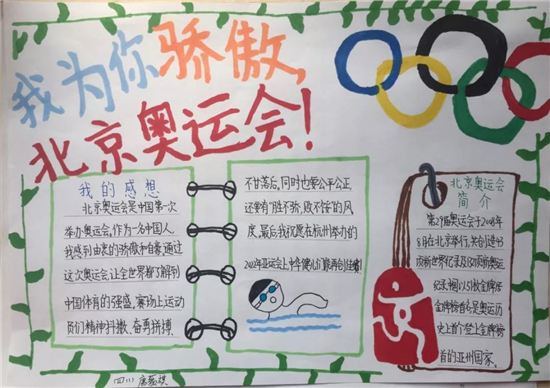 我为你骄傲,
北京奥运会!
我的感想
北京奥运会是中国第一次
举办奥运会,作为一名中国人,
我感到由衷的骄傲和自豪,通过
这次奥运会,让全世界都了解到
中国体育的强盛,赛场上运动
员们精神抖擞、奋勇拼搏
不甘落后,同时也要公平公正,
还要有"胜不骄,败不馁"的风
度,最后,我祝愿在杭州举办的
2022年亚运会上中华健儿们能再创佳绩!
北京奥运会
简介
第29届奥运会于2008年
8月在北京举行,共创造43
项新世界纪录及132项新奥运
纪录,中国以51枚金牌居
金牌榜首名,是奥运历
史上首个登上金牌榜
首的亚洲国家。
四(1)